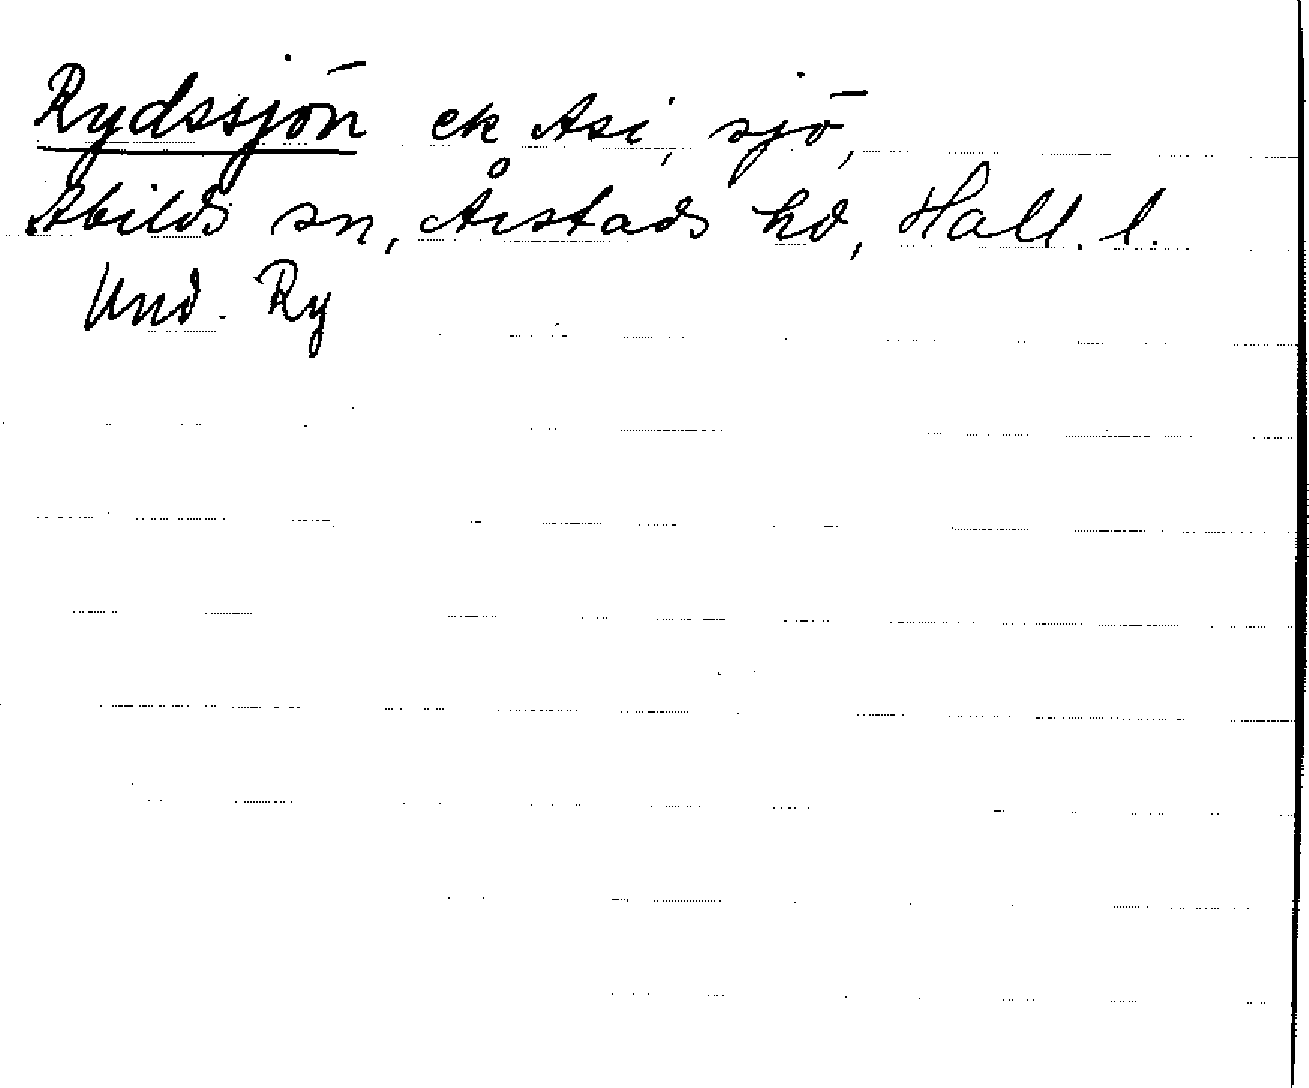 Rydssjön ek A5i, sjö,
Abilds sn, Årstads hd, Hall. l.
Und. Ry